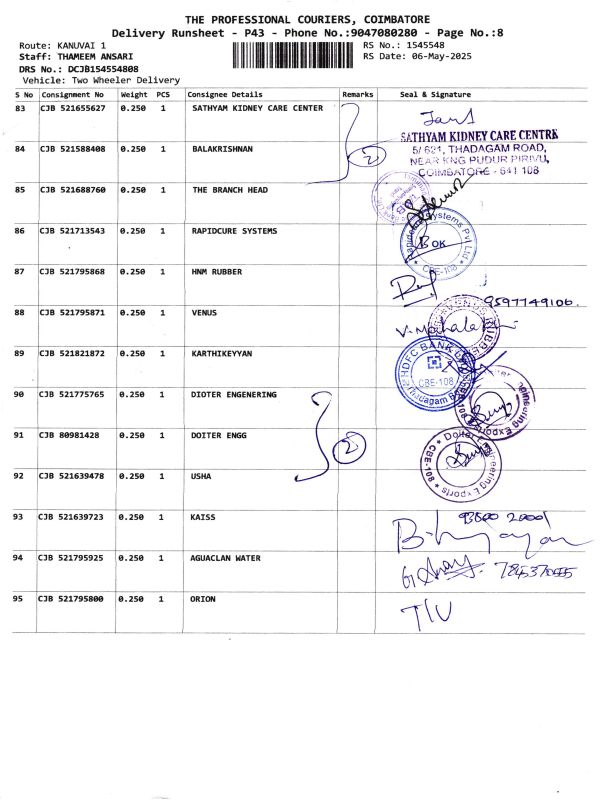 THE PROFESSIONAL COURIERS, COIMBATORE
Delivery Runsheet - P43 - Phone No.:9047080280 - Page No.:8
Route: KANUVAI 1 RS No.: 1545548
Staff: THAMEEM ANSARI RS Date: 06-May-2025
DRS No.: DCJB154554808
Vehicle: Two Wheeler Delivery
S No Consignment No Weight PCS Consignee Details Remarks Seal & Signature
83 CJB 521655627 0.250 1 SATHYAM KIDNEY CARE CENTER
SATHYAM KIDNEY CARE CENTRE
84 CJB 521588408 0.250 1 BALAKRISHNAN 2 5/621, THADAGAM ROAD,
NEAR KNG PUDUR PIRIVU,
COIMBATORE - 641 108
85 CJB 521688760 0.250 1 THE BRANCH HEAD
86 CJB 521713543 0.250 1 RAPIDCURE SYSTEMS
Systems Pvt Ltd
CBE-108
87 CJB 521795868 0.250 1 HNM RUBBER
9597749106.
88 CJB 521795871 0.250 1 VENUS
VENUS RUBBE
89 CJB 521821872 0.250 1 KARTHIKEYYAN
HDFC BANK
CBE-108
Thadagam
90 CJB 521775765 0.250 1 DIOTER ENGENERING
91 CJB 80981428 0.250 1 DOITER ENGG 2
Doiter Engineering Exports
CBE-108
92 CJB 521639478 0.250 1 USHA
93 CJB 521639723 0.250 1 KAISS
94 CJB 521795925 0.250 1 AGUACLAN WATER
95 CJB 521795800 0.250 1 ORION